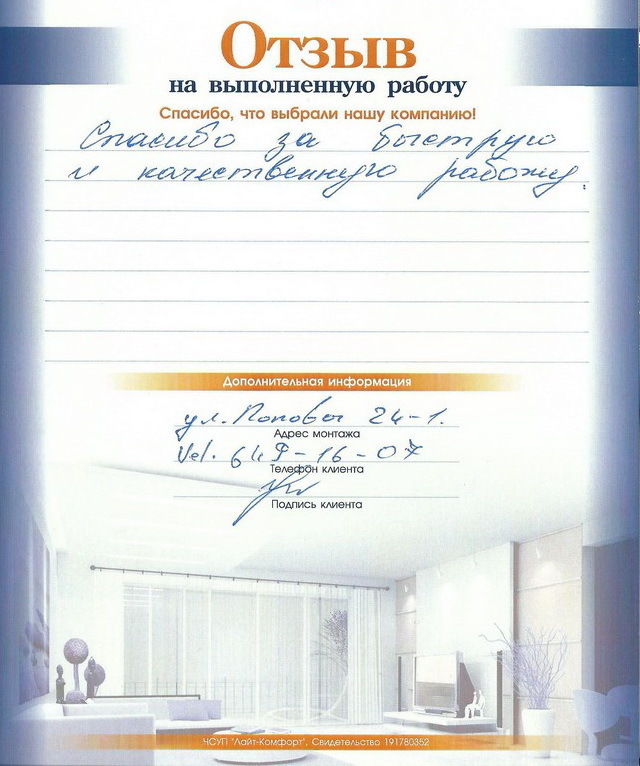 Отзыв
на выполненную работу
Спасибо, что выбрали нашу компанию!
Спасибо за быструю
и качественную работу.
Дополнительная информация
ул. Попова 24-1.
Адрес монтажа
Vel. 649-16-07
Телефон клиента
Подпись клиента
ЧСУП "Лайт-Комфорт", Свидетельство 191780352